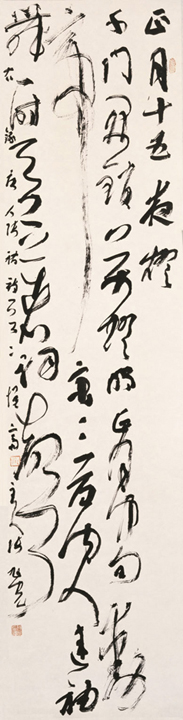 正月十五夜燈
千門開鎖萬燈明正月中旬動
帝京三百內人連袖
舞一時天上著詞聲
右錄唐人張祜詩